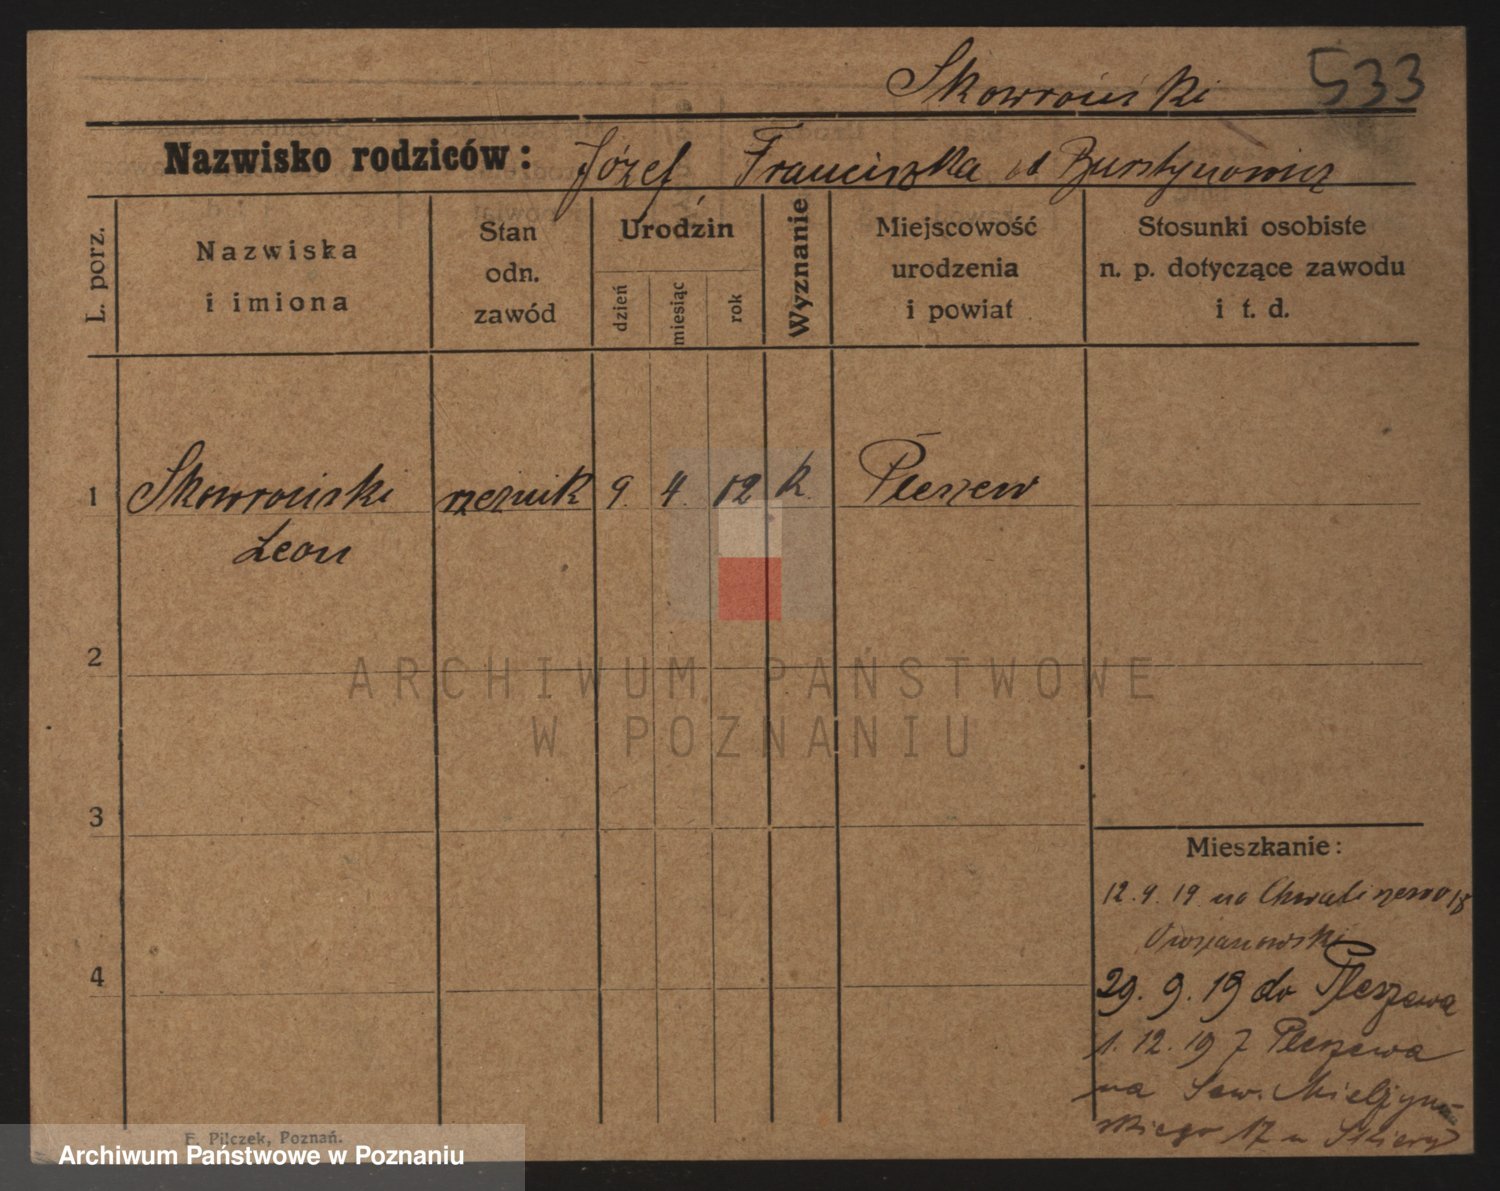 Skowroński 533
Nazwisko rodziców: Józef Franciszka Bursztynowicz
L. porz.
Nazwiska
i imiona
Stan
odn.
zawód
Urodzin
dzień
miesiąc
rok
Wyznanie
Miejscowość
urodzenia
i powiat
Stosunki osobiste
n. p. dotyczące zawodu
i t. d.
1 Skowroński rzeźnik 9. 4. 02 k. Pleszew
Leon
2
ARCHIWUM PAŃSTWOWE
W POZNANIU
3
Mieszkanie:
12. 9. 19 na Chwaliszewo 18
4
29. 9. 19 do Pleszewa
1. 12. 19 z Pleszewa
na Sew. Mielżyń-
skiego 17 u
F. Pilczek, Poznań.
Archiwum Państwowe w Poznaniu